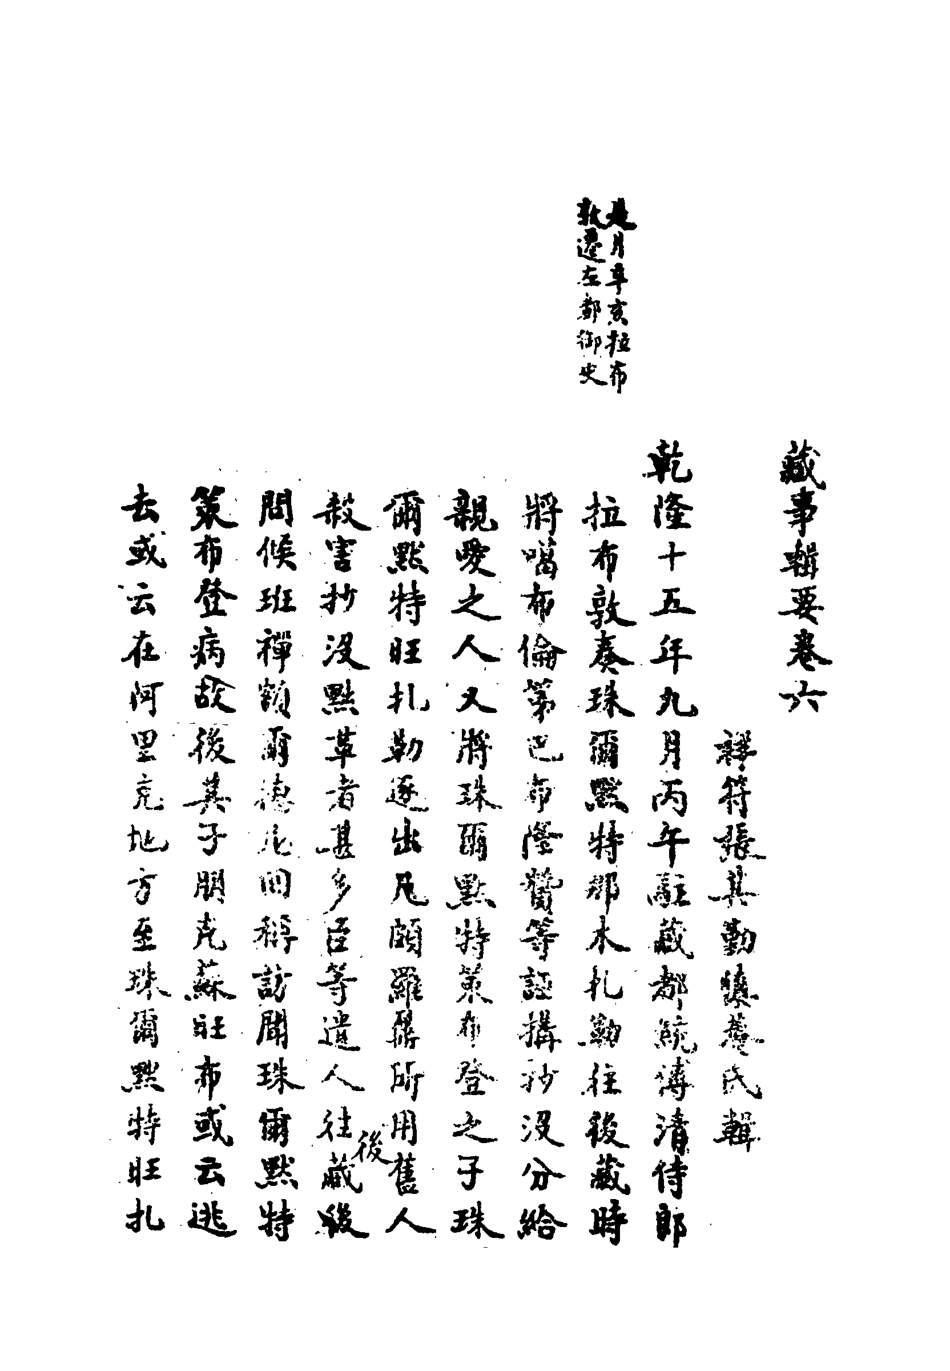 藏事輯要卷六
祥符張其勤慎菴氏輯
乾隆十五年九月丙午駐藏都統傅清侍郎
拉布敦奏珠爾默特那木札勒往後藏時
將噶布倫第巴布隆贊等誣搆抄沒分給
親愛之人又將珠爾默特策布登之子珠
爾默特旺札勒逐出凡頗羅鼐所用舊人
殺害抄沒黜革者甚多臣等遣人往藏後
後
問候班禪額爾德尼回稱訪聞珠爾默特
策布登病故後其子朋克蘇旺布或云逃
去或云在阿里克地方至珠爾默特旺札
是月辛亥拉布
敦遷左都御史